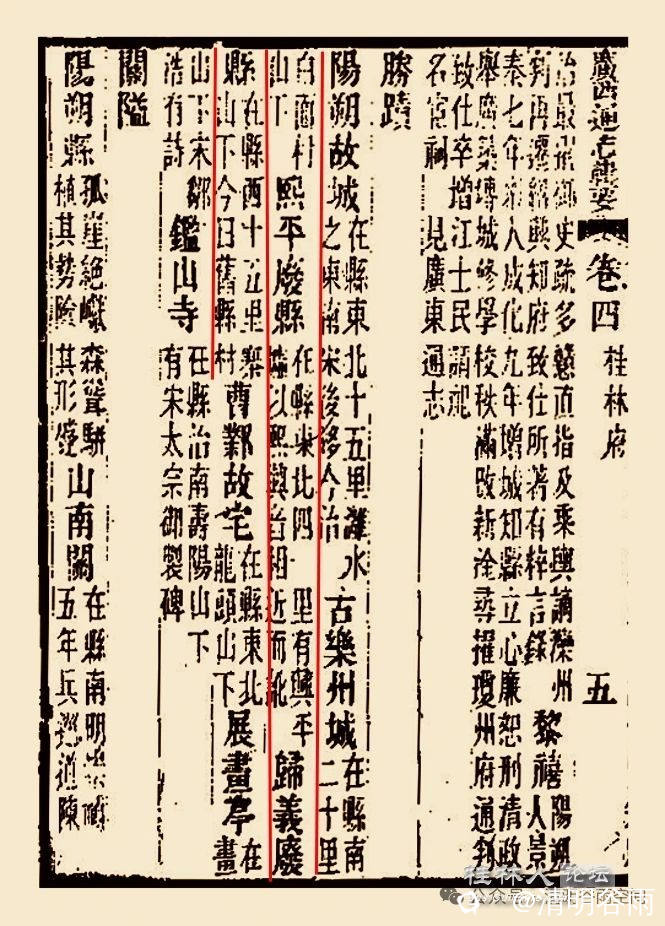 廣西通志輯要 卷四 桂林府 五
治最擢御史疏多戇直指及乘輿謫灤州
判再遷紹興知府致仕所著有粹言錄 黎禧 陽朔人景
泰七年 人成化九年增城知縣立心廉恕刑清政
舉廣築磚城修學校秩滿改新淦尋擢瓊州府通判
致仕卒增江士民請祀
名宦祠 見廣東通志
勝蹟
陽朔故城 在縣東北十五里灕水之東南宋後移今治 古樂州城 在縣南二十里
白面村山下 熙平廢縣 在縣東北四 里有興平 以熙與音相近而訛 歸義廢
縣 在縣西十五里 山下今曰舊縣村 曹鄴故宅 在縣東北龍頭山下 展畫亭 在畫
山下宋鄒浩有詩 鑑山寺 在縣治南壽陽山下有宋太宗御製碑
關隘
陽朔縣 孤崖絕巘森聳駢植其勢險其形 山南關 在縣南明崇禎五年兵巡道陳
桂林人论坛
公众号
@清明谷雨